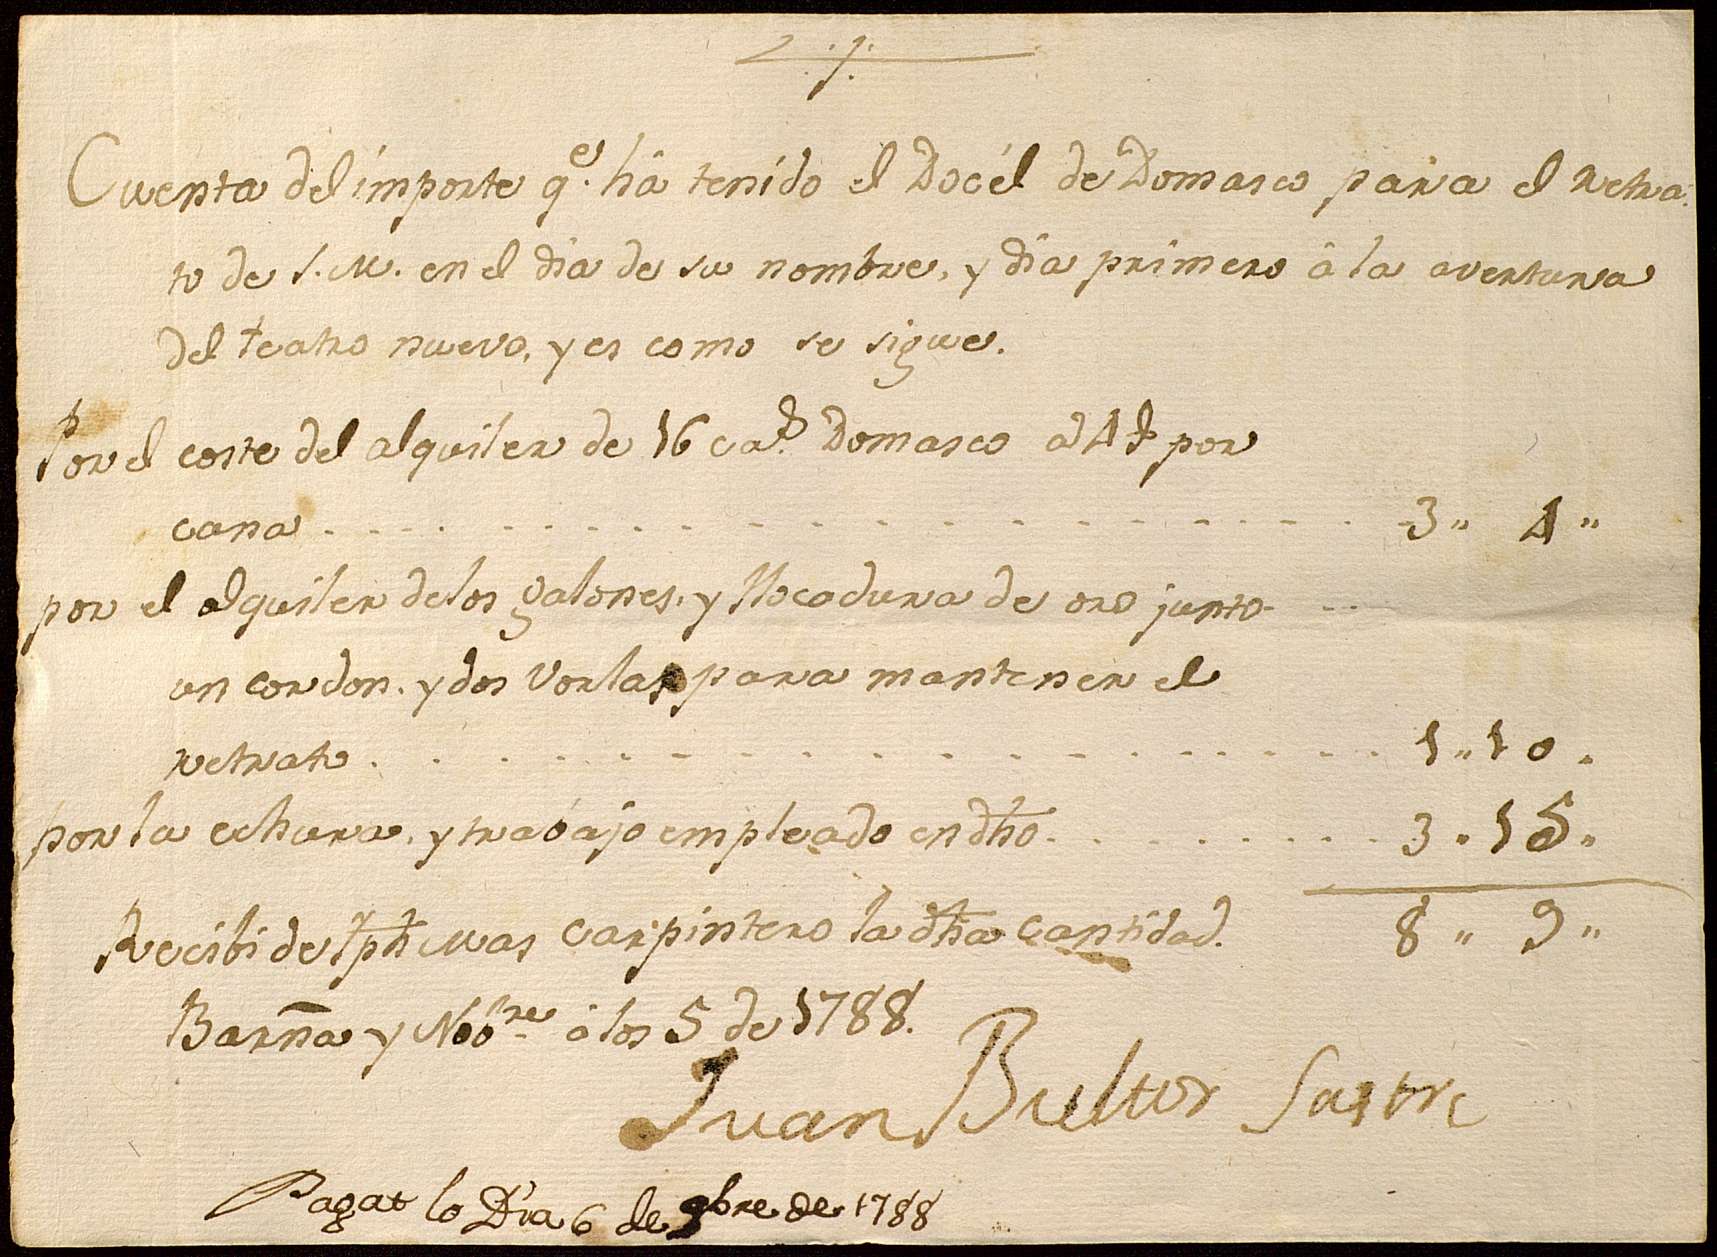 Cuenta del importe q.e hâ tenido el Docél de Domasco para el retra-
to de S.M. en el dia de su nombre, y dia primero â la avertura
del teatro nuevo, y es como se sigue.
Por el coste del alquiler de 16 ca.s Domasco â 4 por
cana 3 " 4 "
por el alquiler de los galones, y flocadura de oro junto
un cordon, y dos vorlas para mantener el
retrato 1 " 10 "
por la echura, y trabajo empleado en dho 3 " 15 "
8 " 9 "
Recibi de Jph Mas Carpintero la dha cantidad.
Barña y Nob.re â los 5 de 1788.
Juan Bultor Sastre
Pagat lo Dia 6 de 9bre de 1788